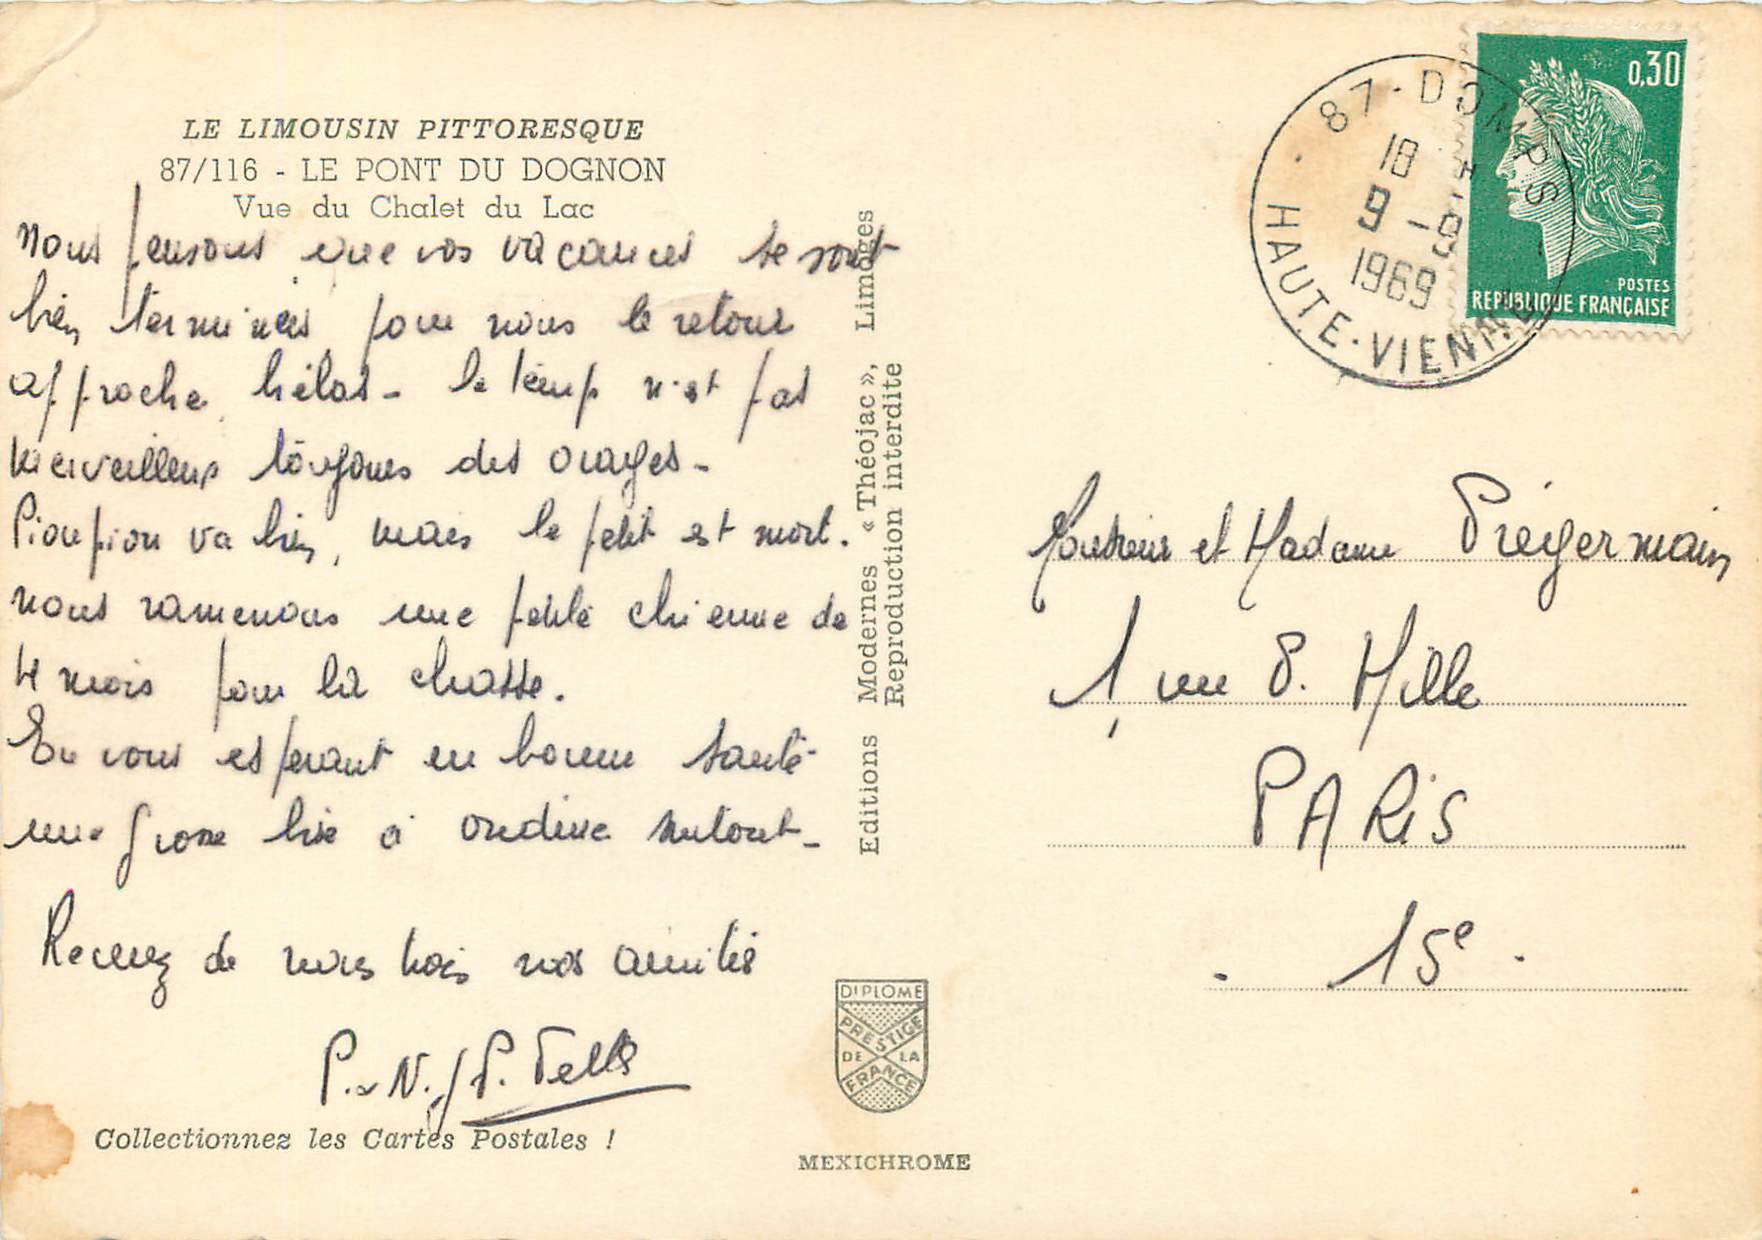 LE LIMOUSIN PITTORESQUE
87/116 - LE PONT DU DOGNON
Vue du Chalet du Lac
Nous pensons que vos vacances se sont
bien terminées pour nous le retour
approche hélas - le temp n'est pas
merveilleux toujours des orages -
Pioupiou va bien, mais le petit est mort.
nous ramenons une petite chienne de
4 mois pour la chasse.
En vous espérant en bonne santé
une grosse bise à ondine surtout -
Recevez de nous trois nos amitiés
P. N. J P.
Collectionnez les Cartes Postales !
Editions Modernes « Théojac », Limoges
Reproduction interdite
DIPLOME
PRESTIGE
DE LA
FRANCE
MEXICHROME
87 - DOMPS
18 H
9 - 9
1969
HAUTE-VIENNE
0,30
POSTES
REPUBLIQUE FRANÇAISE
Monsieur et Madame Prégermain
1, rue P. Mille
PARIS
15e.